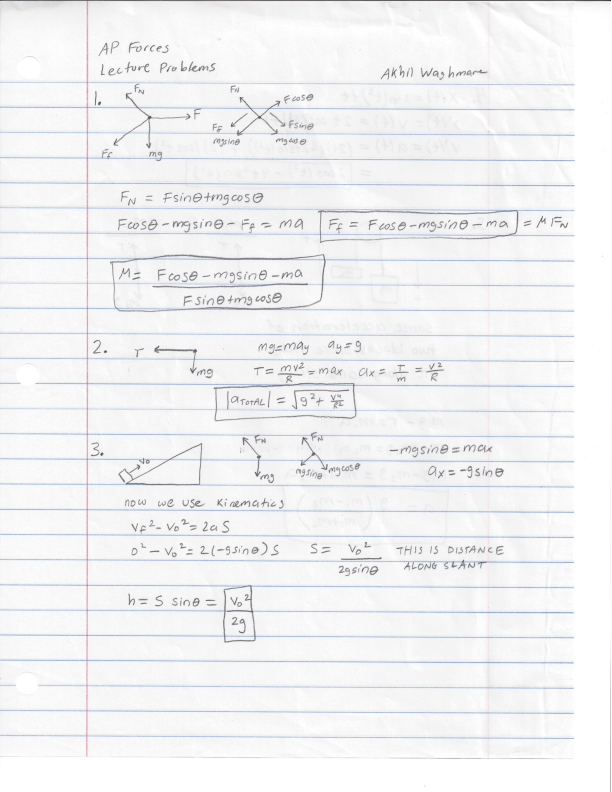 AP Forces
Lecture Problems
Akhil Waghmare
1.
FN
F
Ff
mg
FN
Fcosθ
Ff
Fsinθ
mgsinθ
mgcosθ
FN = Fsinθ+mgcosθ
Fcosθ-mgsinθ-Ff = ma
Ff = Fcosθ-mgsinθ-ma = MFN
M = Fcosθ-mgsinθ-ma
Fsinθ+mgcosθ
2.
T
mg
mg=may ay=g
T = mv²/R = max ax = T/m = v²/R
|aTOTAL| = √g²+v⁴/R²
3.
Vo
FN
mg
FN
mgsinθ
mgcosθ
-mgsinθ=max
ax=-gsinθ
now we use kinematics
Vf²-Vo²=2aS
0²-Vo²=2(-gsinθ)S
S= Vo²/2gsinθ
THIS IS DISTANCE
ALONG SLANT
h= S sinθ = Vo²/2g